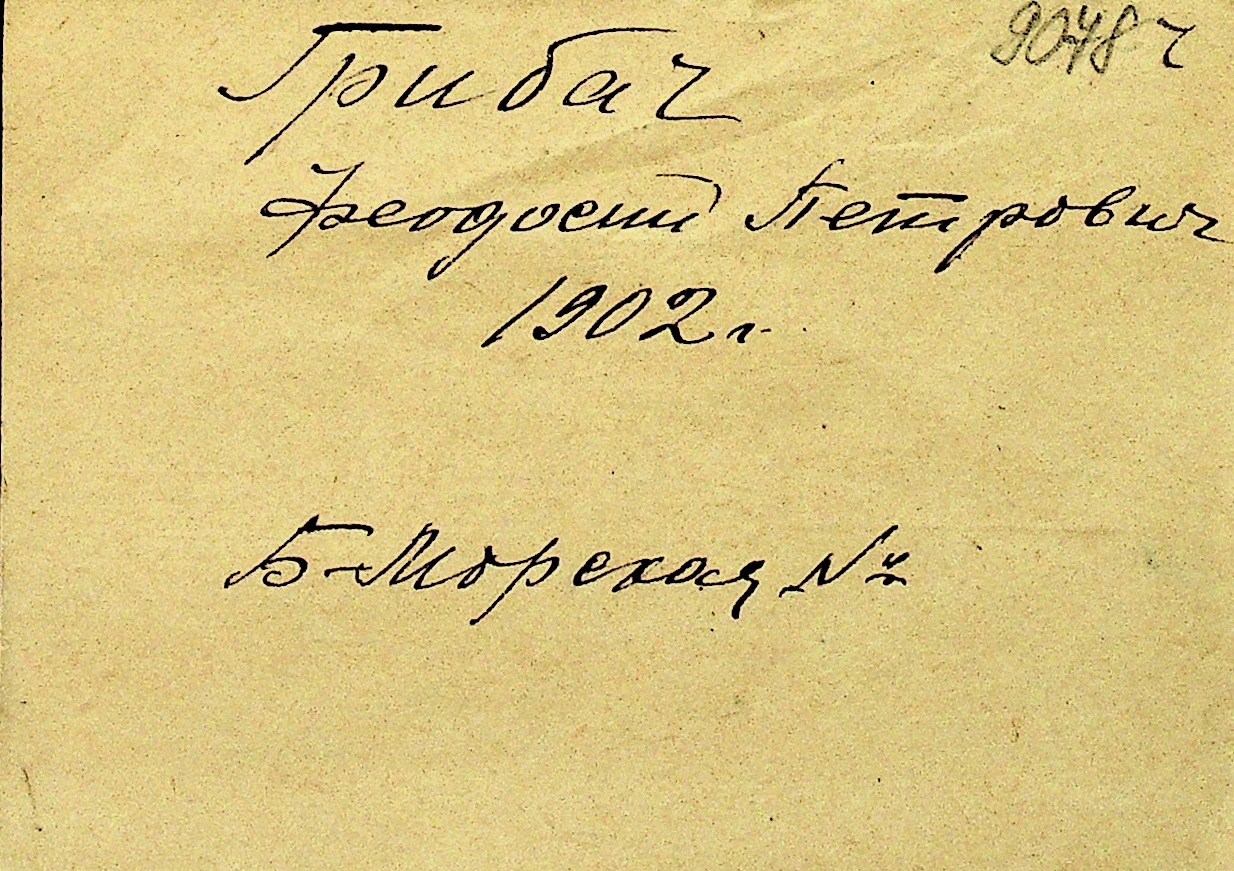 9048 ч
Грибач
Феодосий Петрович
1902 г.
Б-Морская №